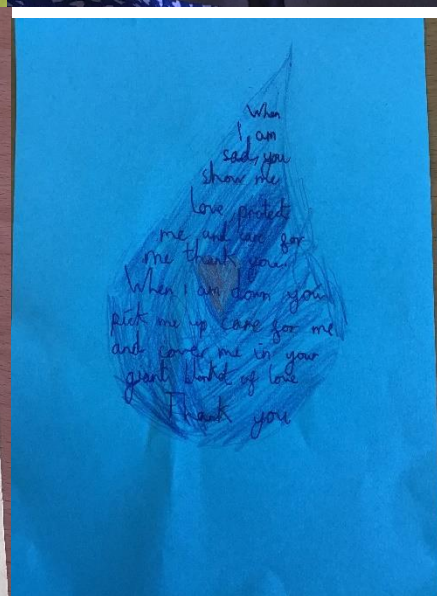 When
I am
sad, you
show me
love protect
me and care for
me thank you.
When I am down you
pick me up care for me
and cover me in your
giant blanket of love
Thank you